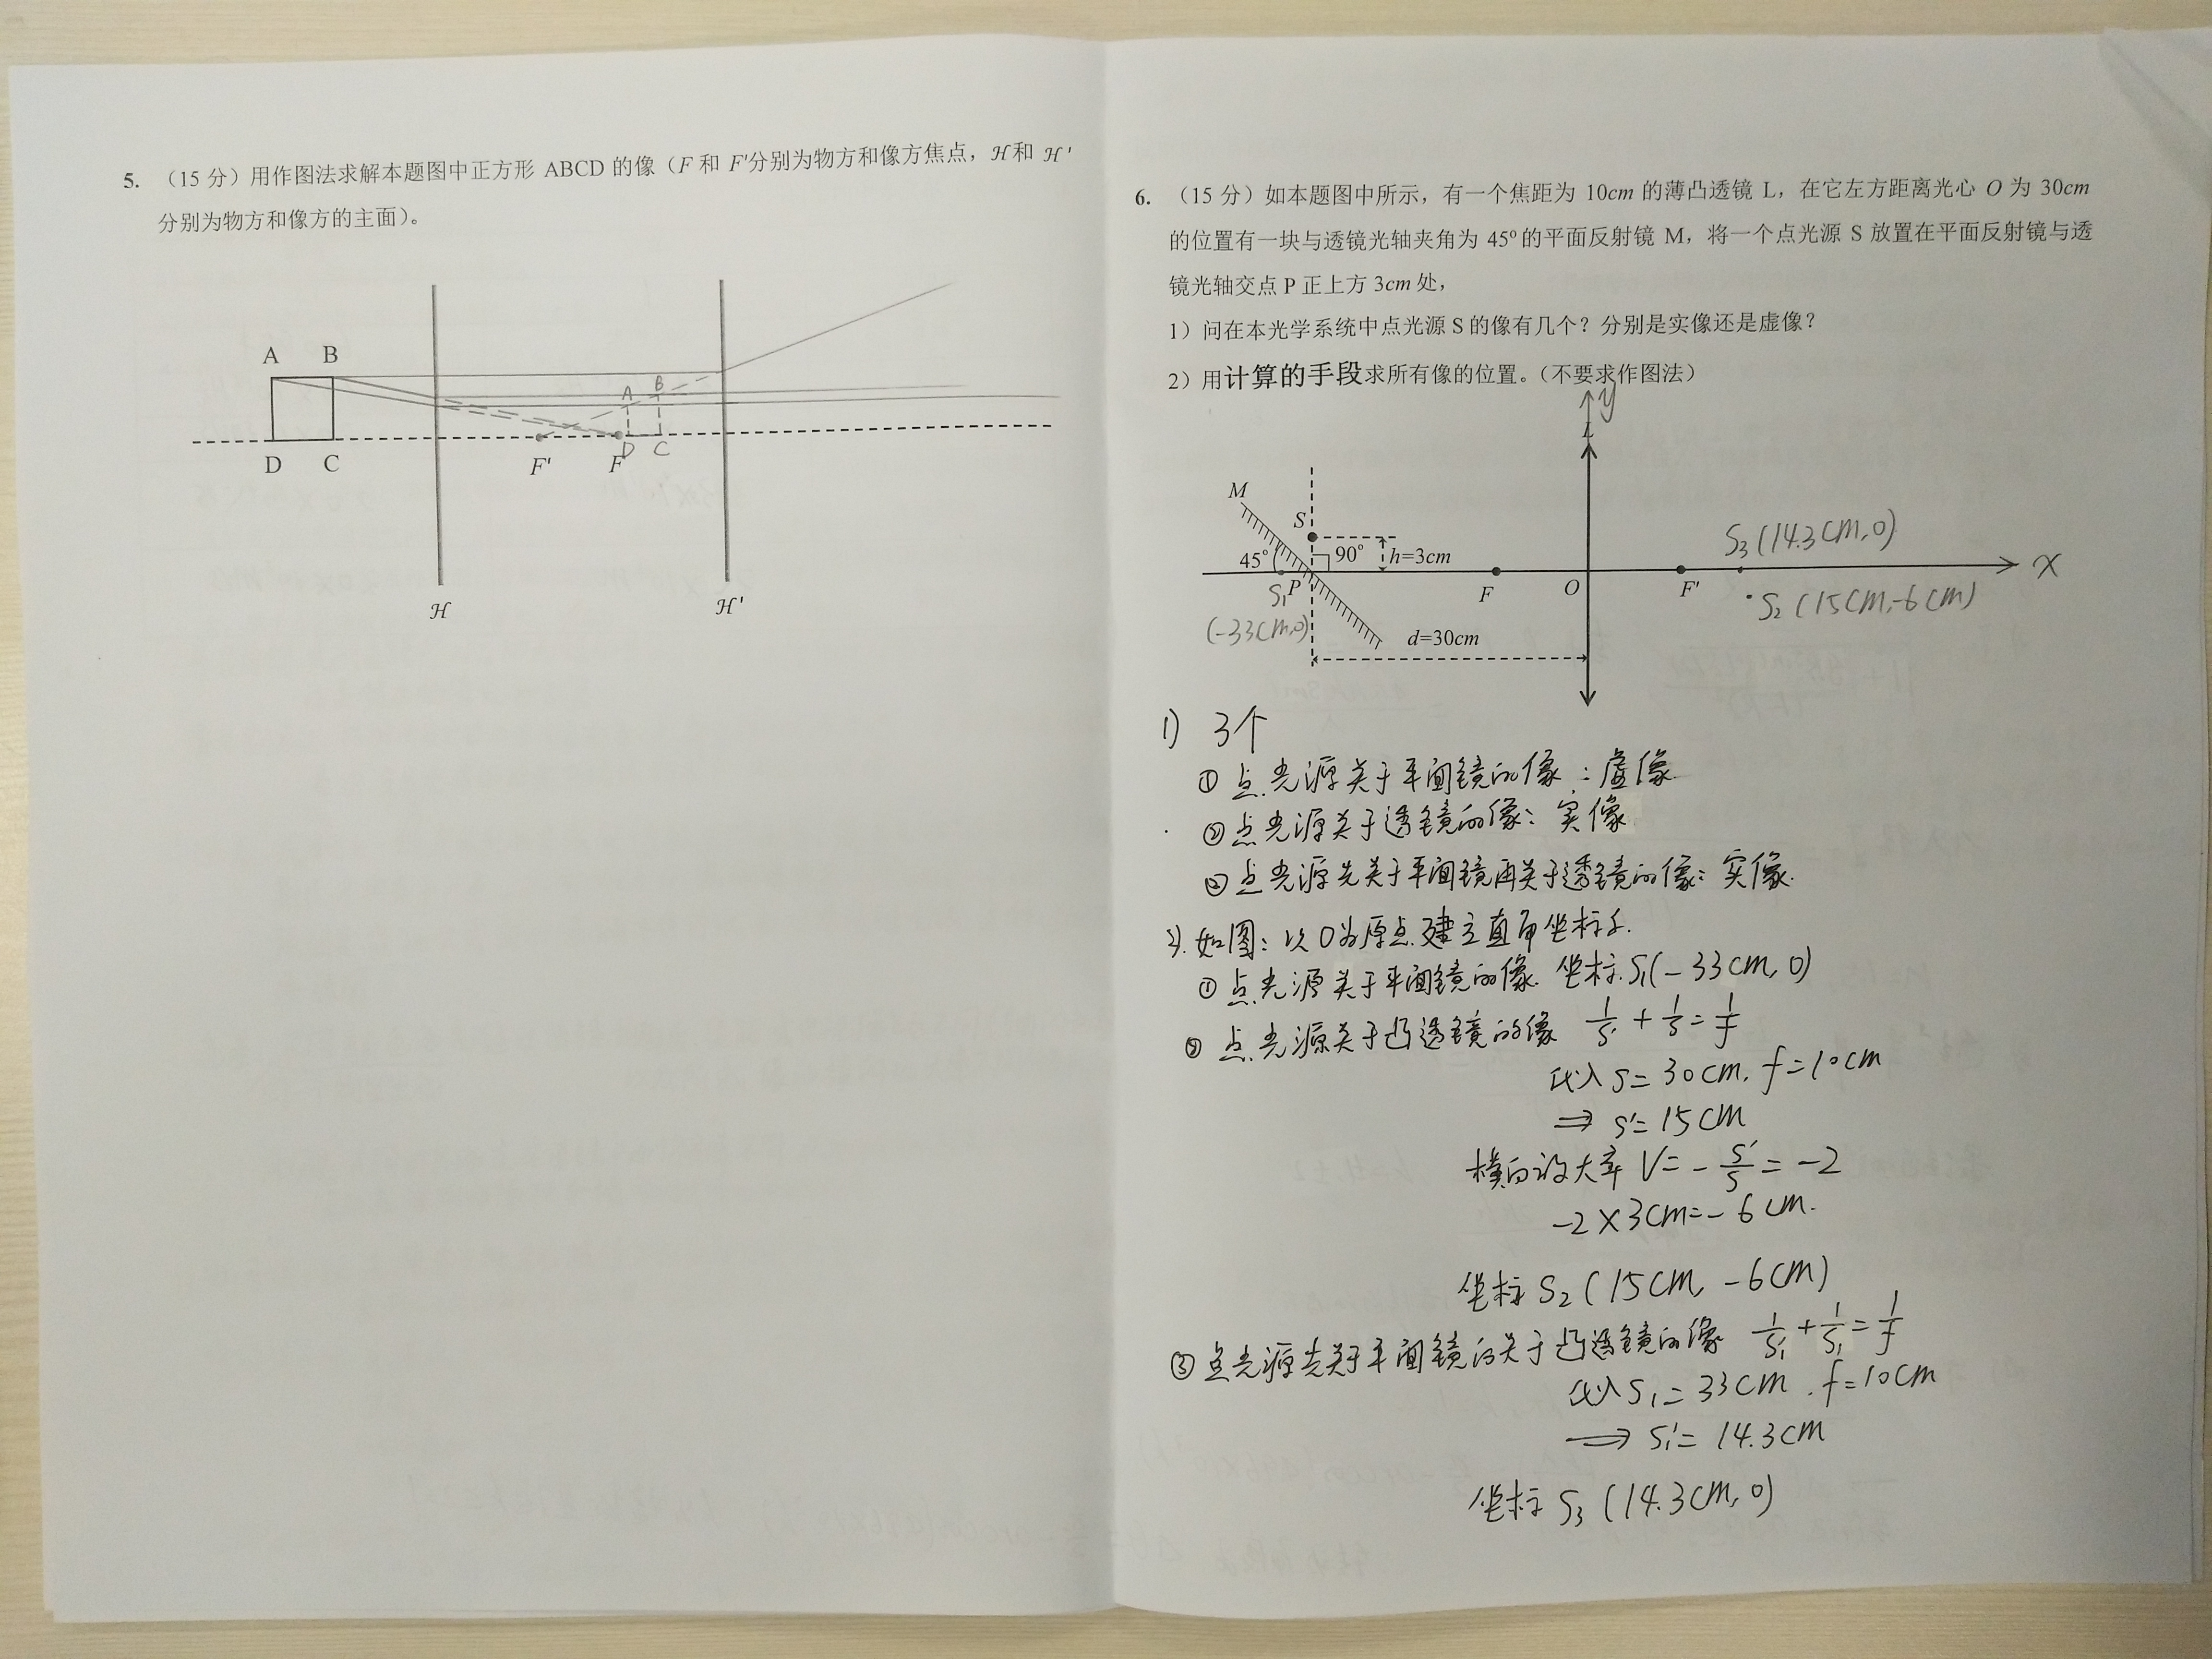 5. （15 分）用作图法求解本题图中正方形 ABCD 的像（F 和 F'分别为物方和像方焦点，ℋ和 ℋ'
分别为物方和像方的主面）。
A B
A B
D C F' F D C
ℋ ℋ'
6. （15 分）如本题图中所示，有一个焦距为 10cm 的薄凸透镜 L，在它左方距离光心 O 为 30cm
的位置有一块与透镜光轴夹角为 45° 的平面反射镜 M，将一个点光源 S 放置在平面反射镜与透
镜光轴交点 P 正上方 3cm 处，
1）问在本光学系统中点光源 S 的像有几个？分别是实像还是虚像？
2）用计算的手段求所有像的位置。（不要求作图法）
y
L
M
S S₃(14.3cm,0)
45° 90° h=3cm x
S₁ P F O F' S₂(15cm,-6cm)
(-33cm,0) d=30cm
1) 3个
① 点光源关于平面镜的像：虚像
② 点光源关于透镜的像：实像
② 点光源先关于平面镜再关于透镜的像：实像.
2). 如图：以O为原点建立直角坐标系.
① 点光源关于平面镜的像. 坐标.S₁(-33cm, 0)
② 点光源关于凸透镜的像 1/s' + 1/s = 1/f
代入 s=30cm, f=10cm
⇒ s'=15cm
横向放大率 V= - s'/s = -2
-2×3cm=-6cm.
坐标 S₂(15cm, -6cm)
③ 点光源先关于平面镜后关于凸透镜的像 1/s₁' + 1/s₁ = 1/f
代入 s₁=33cm. f=10cm
⇒ s₁'= 14.3cm
坐标 S₃(14.3cm, 0)